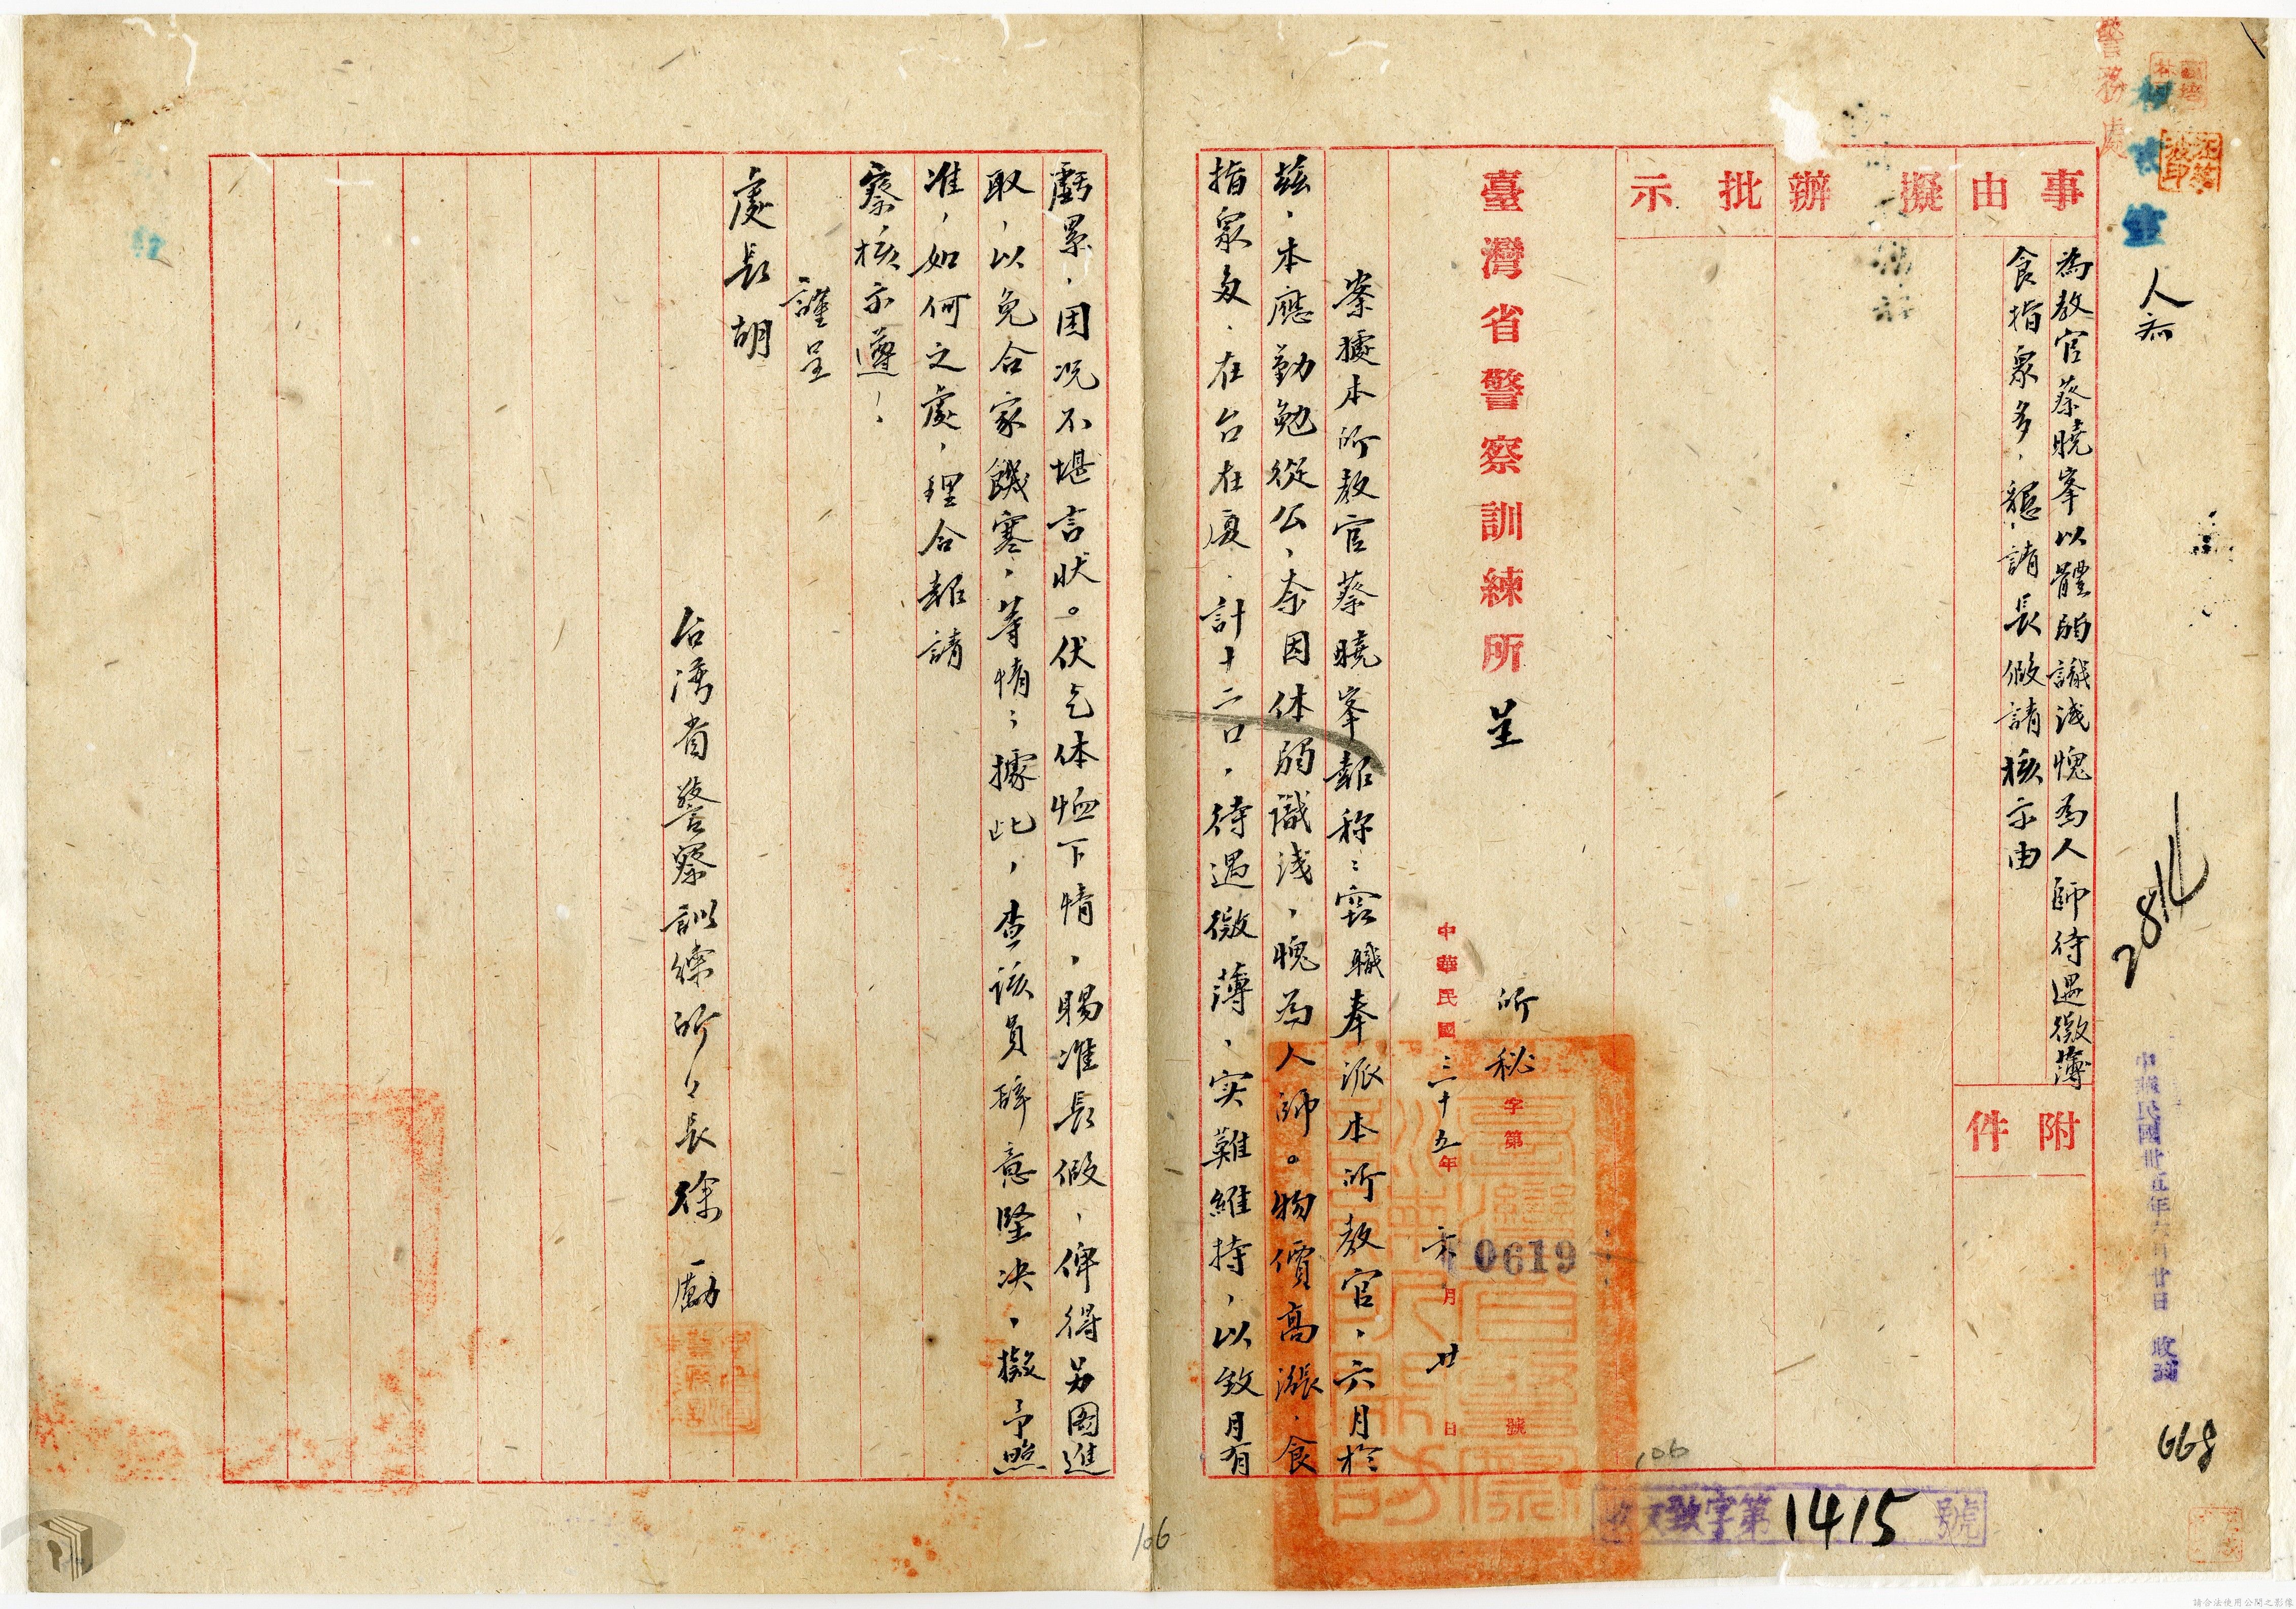 警務處
人知
2814
中華民國卅五年六月廿日 收到
668
事由
為教官蔡曉峯以體弱識淺愧為人師待遇微薄
食指衆多、懇請長假請核示由
附件
擬辦
批示
臺灣省警察訓練所呈
所秘字第0619號
中華民國三十五年六月廿日
案據本所教官蔡曉峯報称：窃職奉派本所教官，六月於
茲，本應勤勉從公，奈因体弱識淺，愧為人師。物價高漲，食
指衆多，在台在厦，計十二口，待遇微薄，实難維持，以致月有
虧累，困况不堪言狀。伏乞体恤下情，賜准長假，俾得另圖進
取，以免合家饑寒，等情；據此，查該員辞意堅决，擬予照
准，如何之處，理合報請
察核示遵！
謹呈
處長胡
台湾省警察訓練所々長徐勵
字第1415號
106
106
請合法使用公開之影像